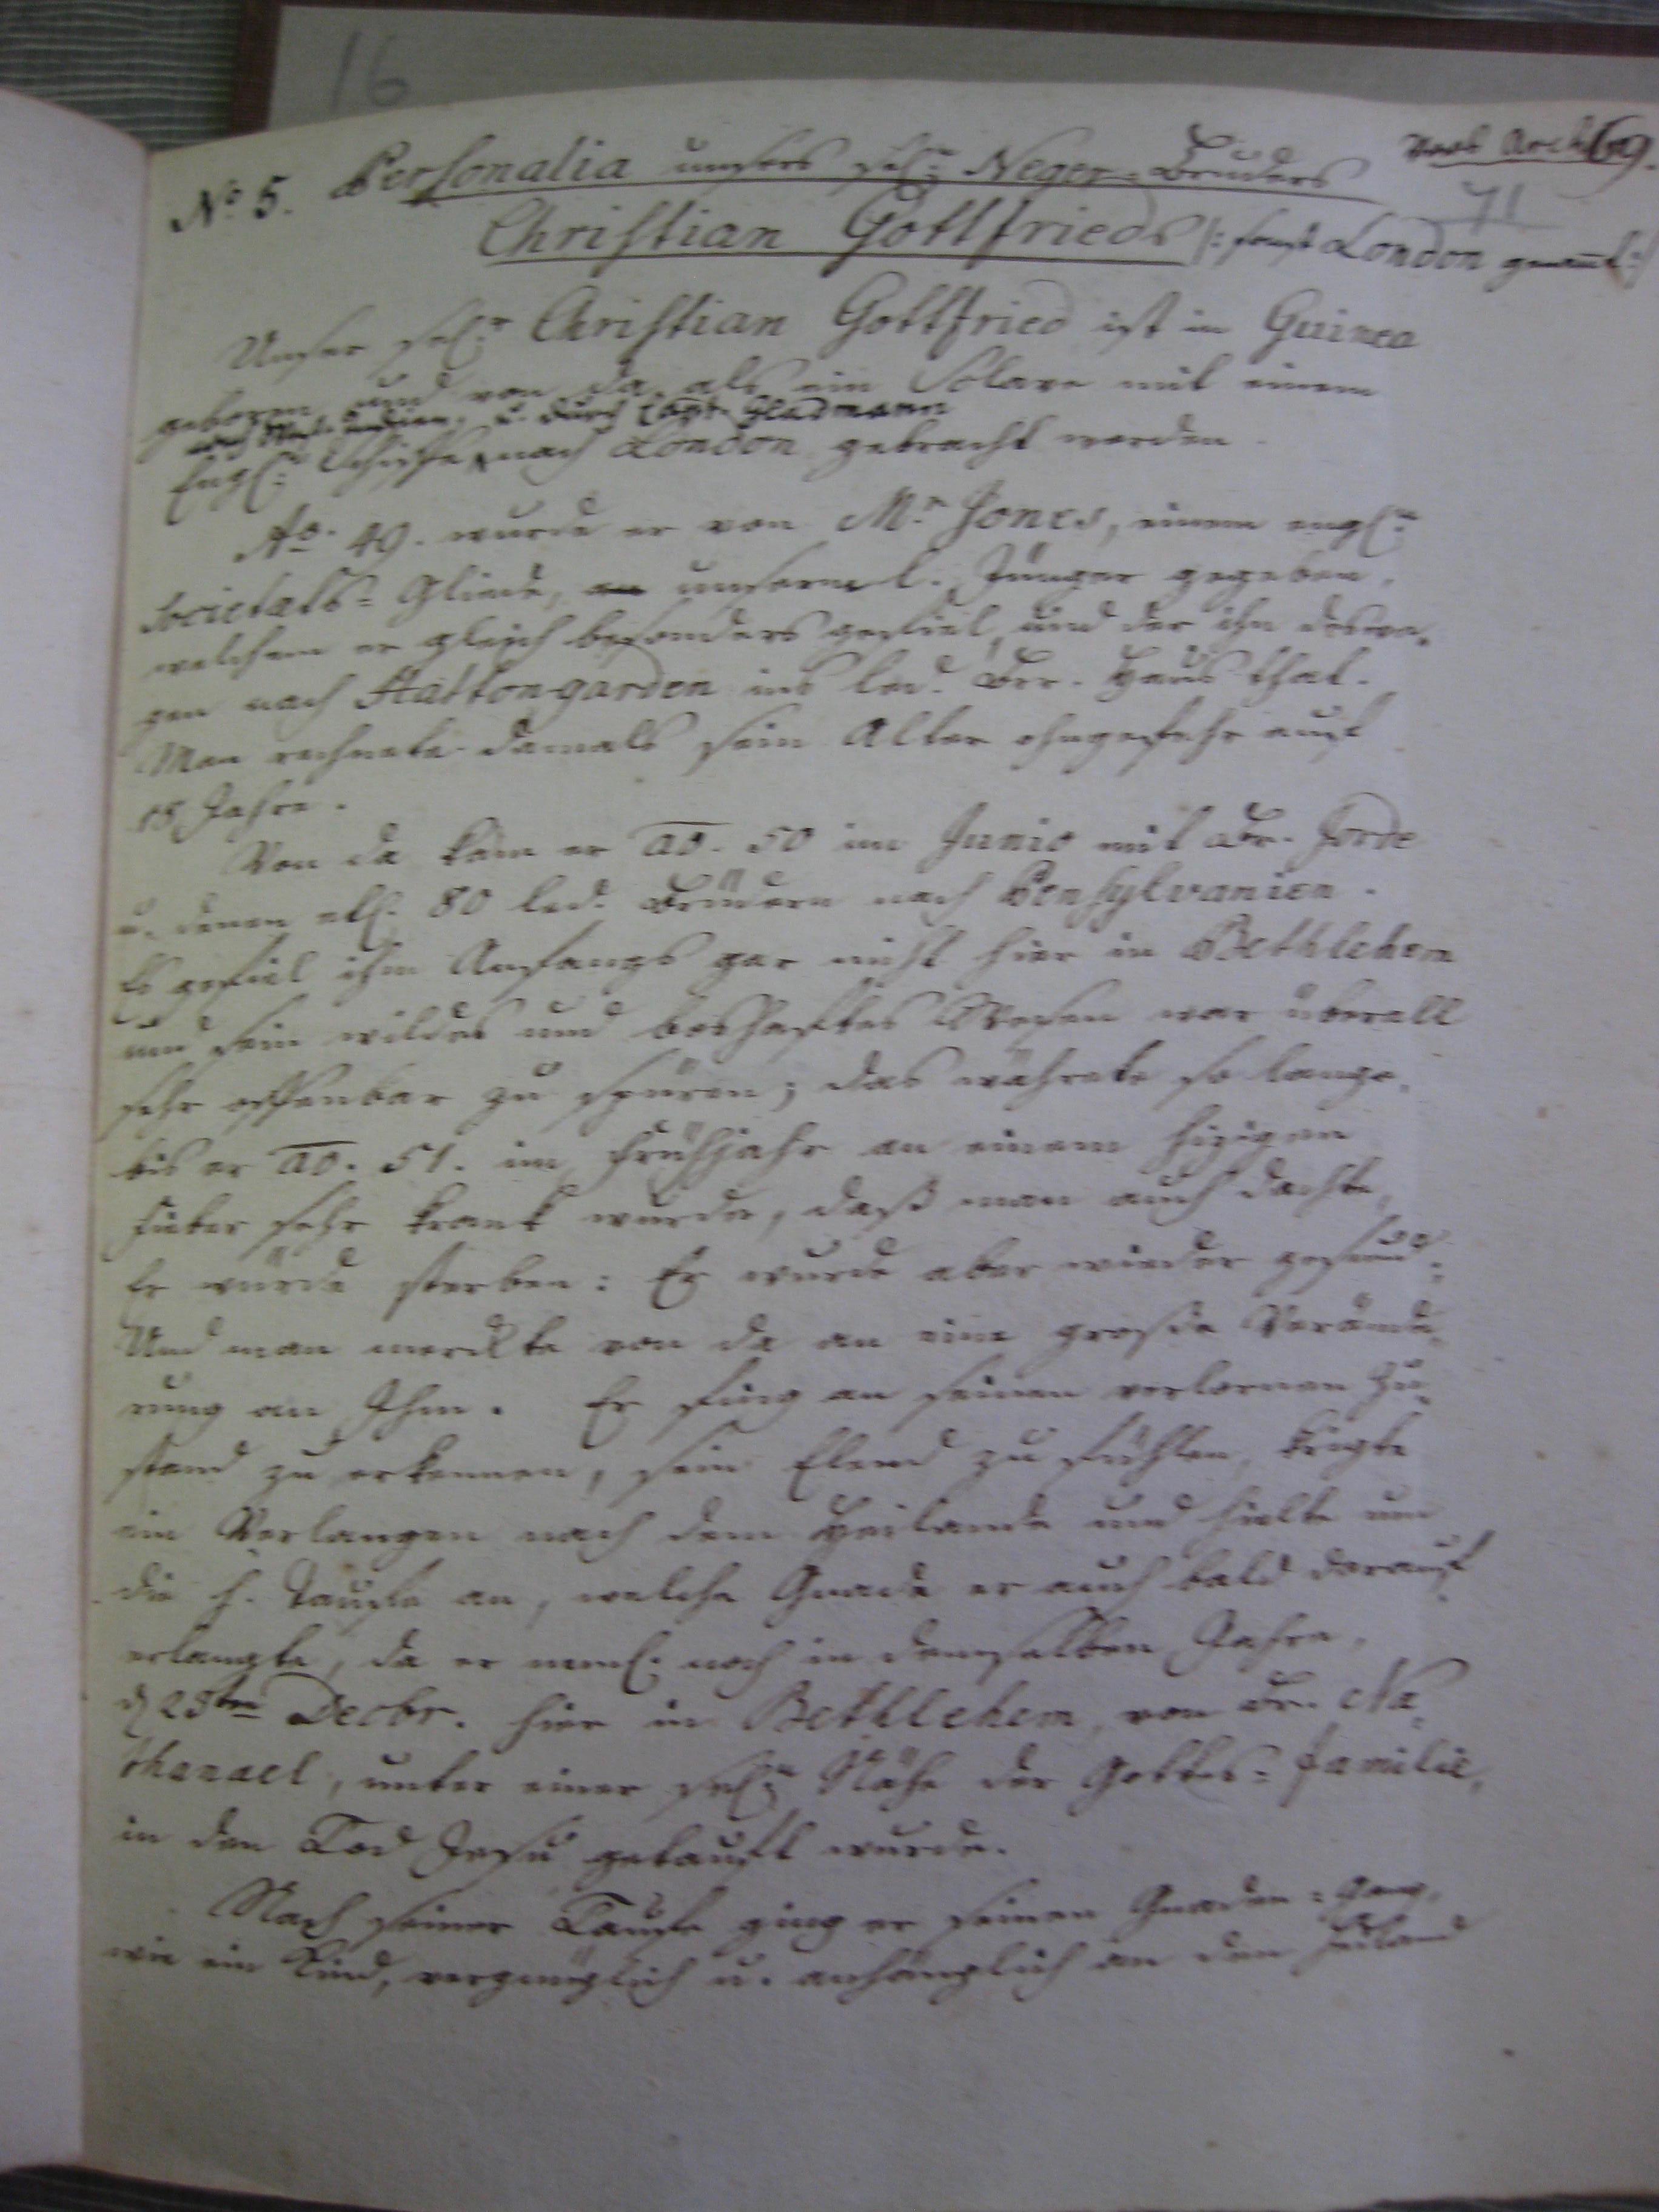 16
69.
71
No 5. Personalia unsers sel:n Neger-Bruders
Christian Gottfrieds /: sonst London genannt :/
Unser sel:r Christian Gottfried ist in Guinea
geboren und von da als ein Sclave mit einem
nach West-Indien, u. durch Capt. Gladmann
Engl:n Schiffe nach London gebracht worden.
Ao. 49. wurde er von Mr. Jones, einem engl:n
Societäts-Gliede, unserm l. Jünger gegeben,
welchem er gleich besonders gefiel, und der ihn deswe-
gen nach Hattongarden ins led. Brr. Haus that.
Man rechnete damals sein Alter ohngefehr auf
18 Jahre.
Von da kam er ao. 50 im Junio mit Br. Jorde
u. denen etl. 80 led. Brüdern nach Pensylvanien.
Es gefiel ihm Anfangs gar nicht hier in Bethlehem
und sein wildes und boshaftes Wesen war überall
sehr offenbar zu spüren; das währete so lange,
bis er ao. 51. im Frühjahr an einem hizigen
Fieber sehr krank wurde, daß man auch dachte,
Er würde sterben: Er wurde aber wieder gesund.
Und man merckte von da an eine große Verände-
rung an Ihm. Er fing an seinen verlornen Zu-
stand zu erkennen, sein Elend zu fühlen, krigte
ein Verlangen nach dem Heilande und hielte um
die h. Taufe an, welche Gnade er auch bald darauf
erlangte, da er neml. noch in demselben Jahre,
d 25ten Decbr. hier in Bethlehem, von Br. Na-
thanael, unter einer sel:n Nähe der Gottes-Familie,
in den Tod Jesu getauft wurde.
Nach seiner Taufe ging er seinen Gnaden-Gang,
wie ein Kind, vergnüglich u. anhänglich an den Heiland